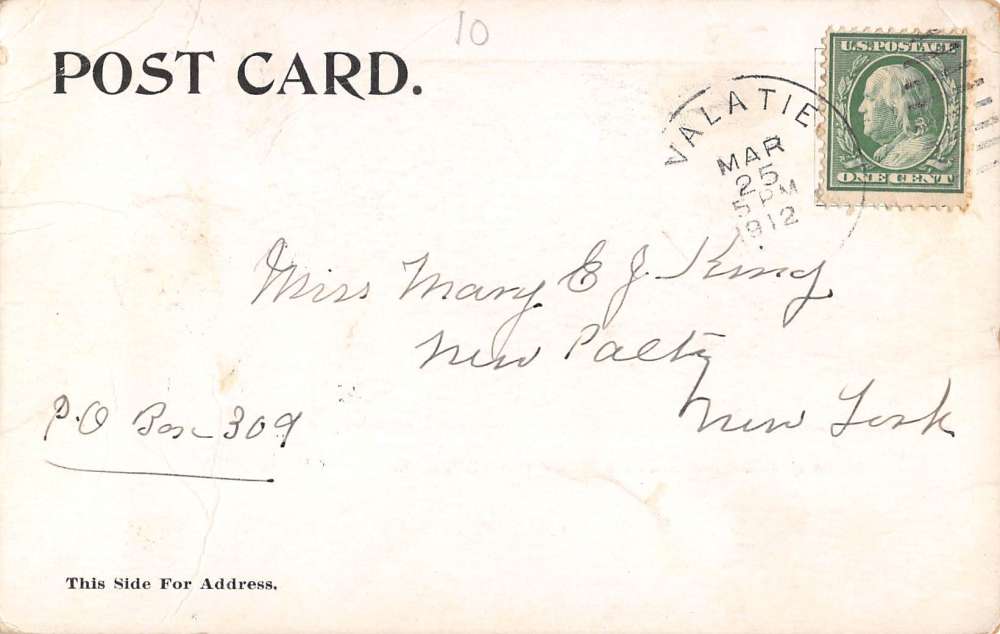 10
POST CARD.
U.S. POSTAGE
ONE CENT
VALATIE
MAR
25
5 PM
1912
Miss Mary E J. King
New Paltz
New York
P.O Box 309
This Side For Address.